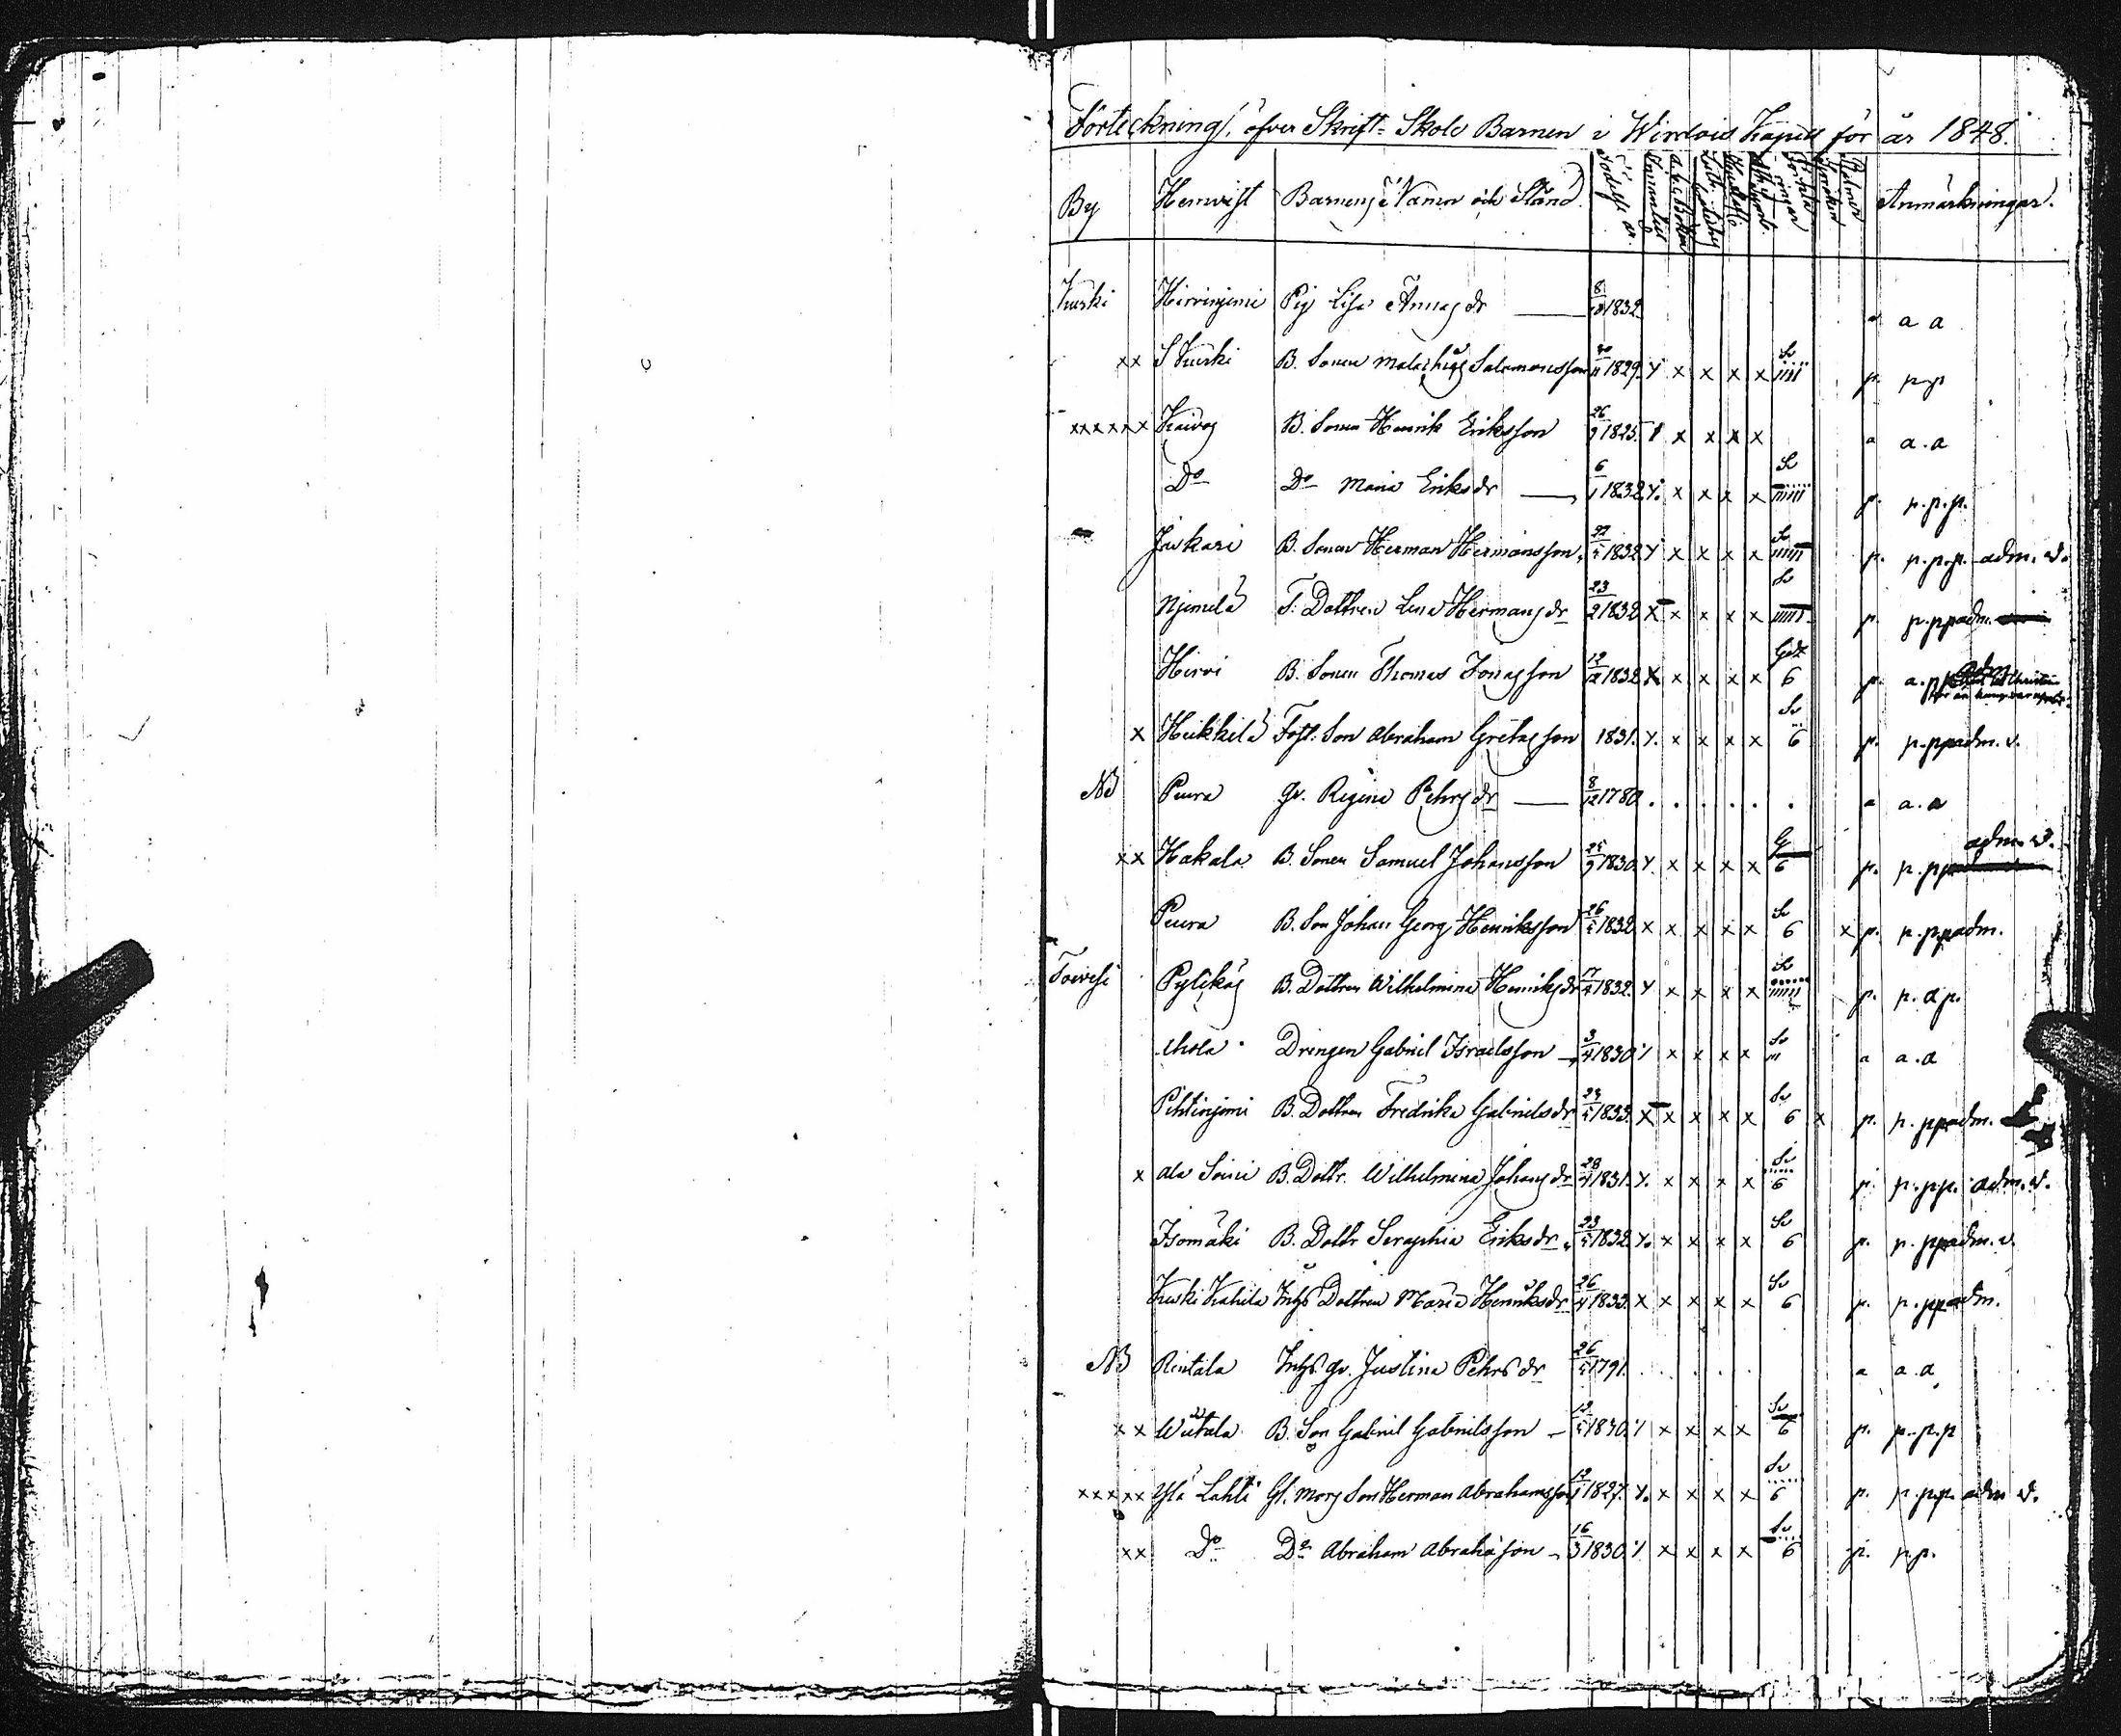 Förteckning, öfver Skrift-Skole Barnen i Wirdois Kapell för år 1848.
By Hemvist Barnens Namn och Stånd. Födelse år. Anmärkningar.
Kurki Hirvinjemi Pig Lisa Annas dr 1832 a a a
xx S Kurki B. Sonen Malachias Salomonsson 1829. x x x x Sv p. p p
xxxxxx Kaivos B. Sonen Henrik Eriksson 26/9 1825. x x x x a a.a
Do Do Maria Eriks dr 6/1 1832 x x x x Sv p. p.p.p.
Jaskari B. Sonen Herman Hermansson 1832 x x x x Sv p. p.p.p. adm. v.
Njemelä T. Dottren Lena Hermans dr 23/2 1832 x x x x x Sv p. p.p.p adm.
Hirvi B. Sonen Thomas Jonasson 12/12 1832 x x x x x Godt 6 p. a.p. adm
x Heikkilä Fost. Son Abraham Gretasson 1831. x x x x Sv 6 p. p.pp adm. v.
NB Peura Gv. Regina Pehrs dr 8/12 1780 . . . . . . a a.a
xx Hakala B. Sonen Samuel Johansson 25/9 1830. x x x x 6 p. p.pp adm. v.
Peura B. Son Johan Georg Henriksson 26/5 1832 x x x x x Sv 6 x p. p.pp adm.
Toivesi Pylikäs B. Dottren Wilhelmina Henriks dr 1832. x x x x Sv p. p.a p.
Ahola Drengen Gabriel Israelsson 3/4 1830 x x x x Sv a a.a
Pihtinjemi B. Dottren Fredrika Gabriels dr 1833. x x x x x Sv 6 x p. p.pp adm.
x Ala Soini B. Dottr. Wilhelmina Johans dr 28/4 1831. x x x x Sv 6 p. p.pp. adm. v.
Isomäki B. Dottr Seraphia Eriks dr 23/5 1832. x x x x Sv 6 p. p.pp adm. v.
Kurki Kahila Inhs Dottren Maria Henriks dr 26/4 1833. x x x x x Sv 6 p. p.pp adm.
NB Rintala Inhs gv. Justina Pehrs dr 26/5 1791. a a.a
xx Wiitala B. Son Gabriel Gabrielsson 1830. x x x x Sv 6 p. p.p.p
xxxxx Ylä Lahti Gl. Mors Son Herman Abrahamsson 1827. x x x x Sv 6 p. p.p.p. adm v.
xx Do Do Abraham Abrahasson 16/3 1830. x x x x Sv 6 p. p.p.